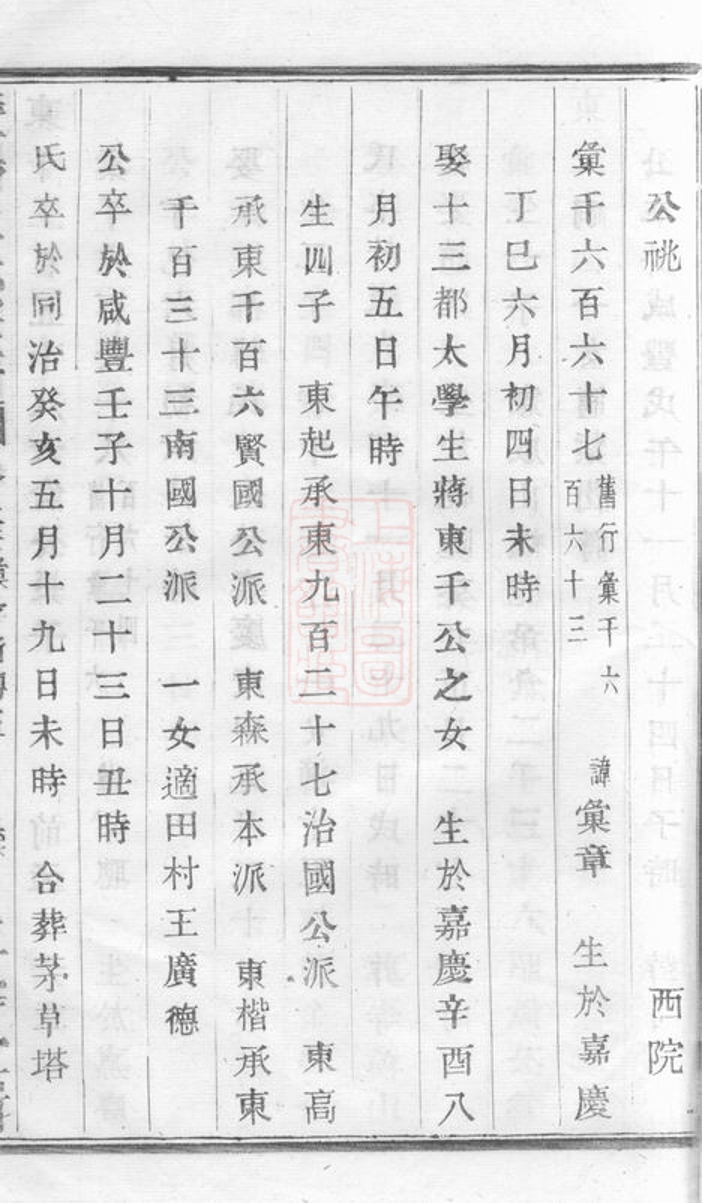 公祧 西院
彙千六百六十七 舊行彙千六百六十三 諱彙章 生於嘉慶
丁巳六月初四日未時
娶十三都太學生蔣東千公之女 生於嘉慶辛酉八
月初五日午時
生四子 東起承東九百二十七治國公派 東高
承東千百六賢國公派 東森承本派 東楷承東
千百三十三南國公派 一女適田村王廣德
公卒於咸豐壬子十月二十三日丑時
氏卒於同治癸亥五月十九日未時 合葬茅草塔